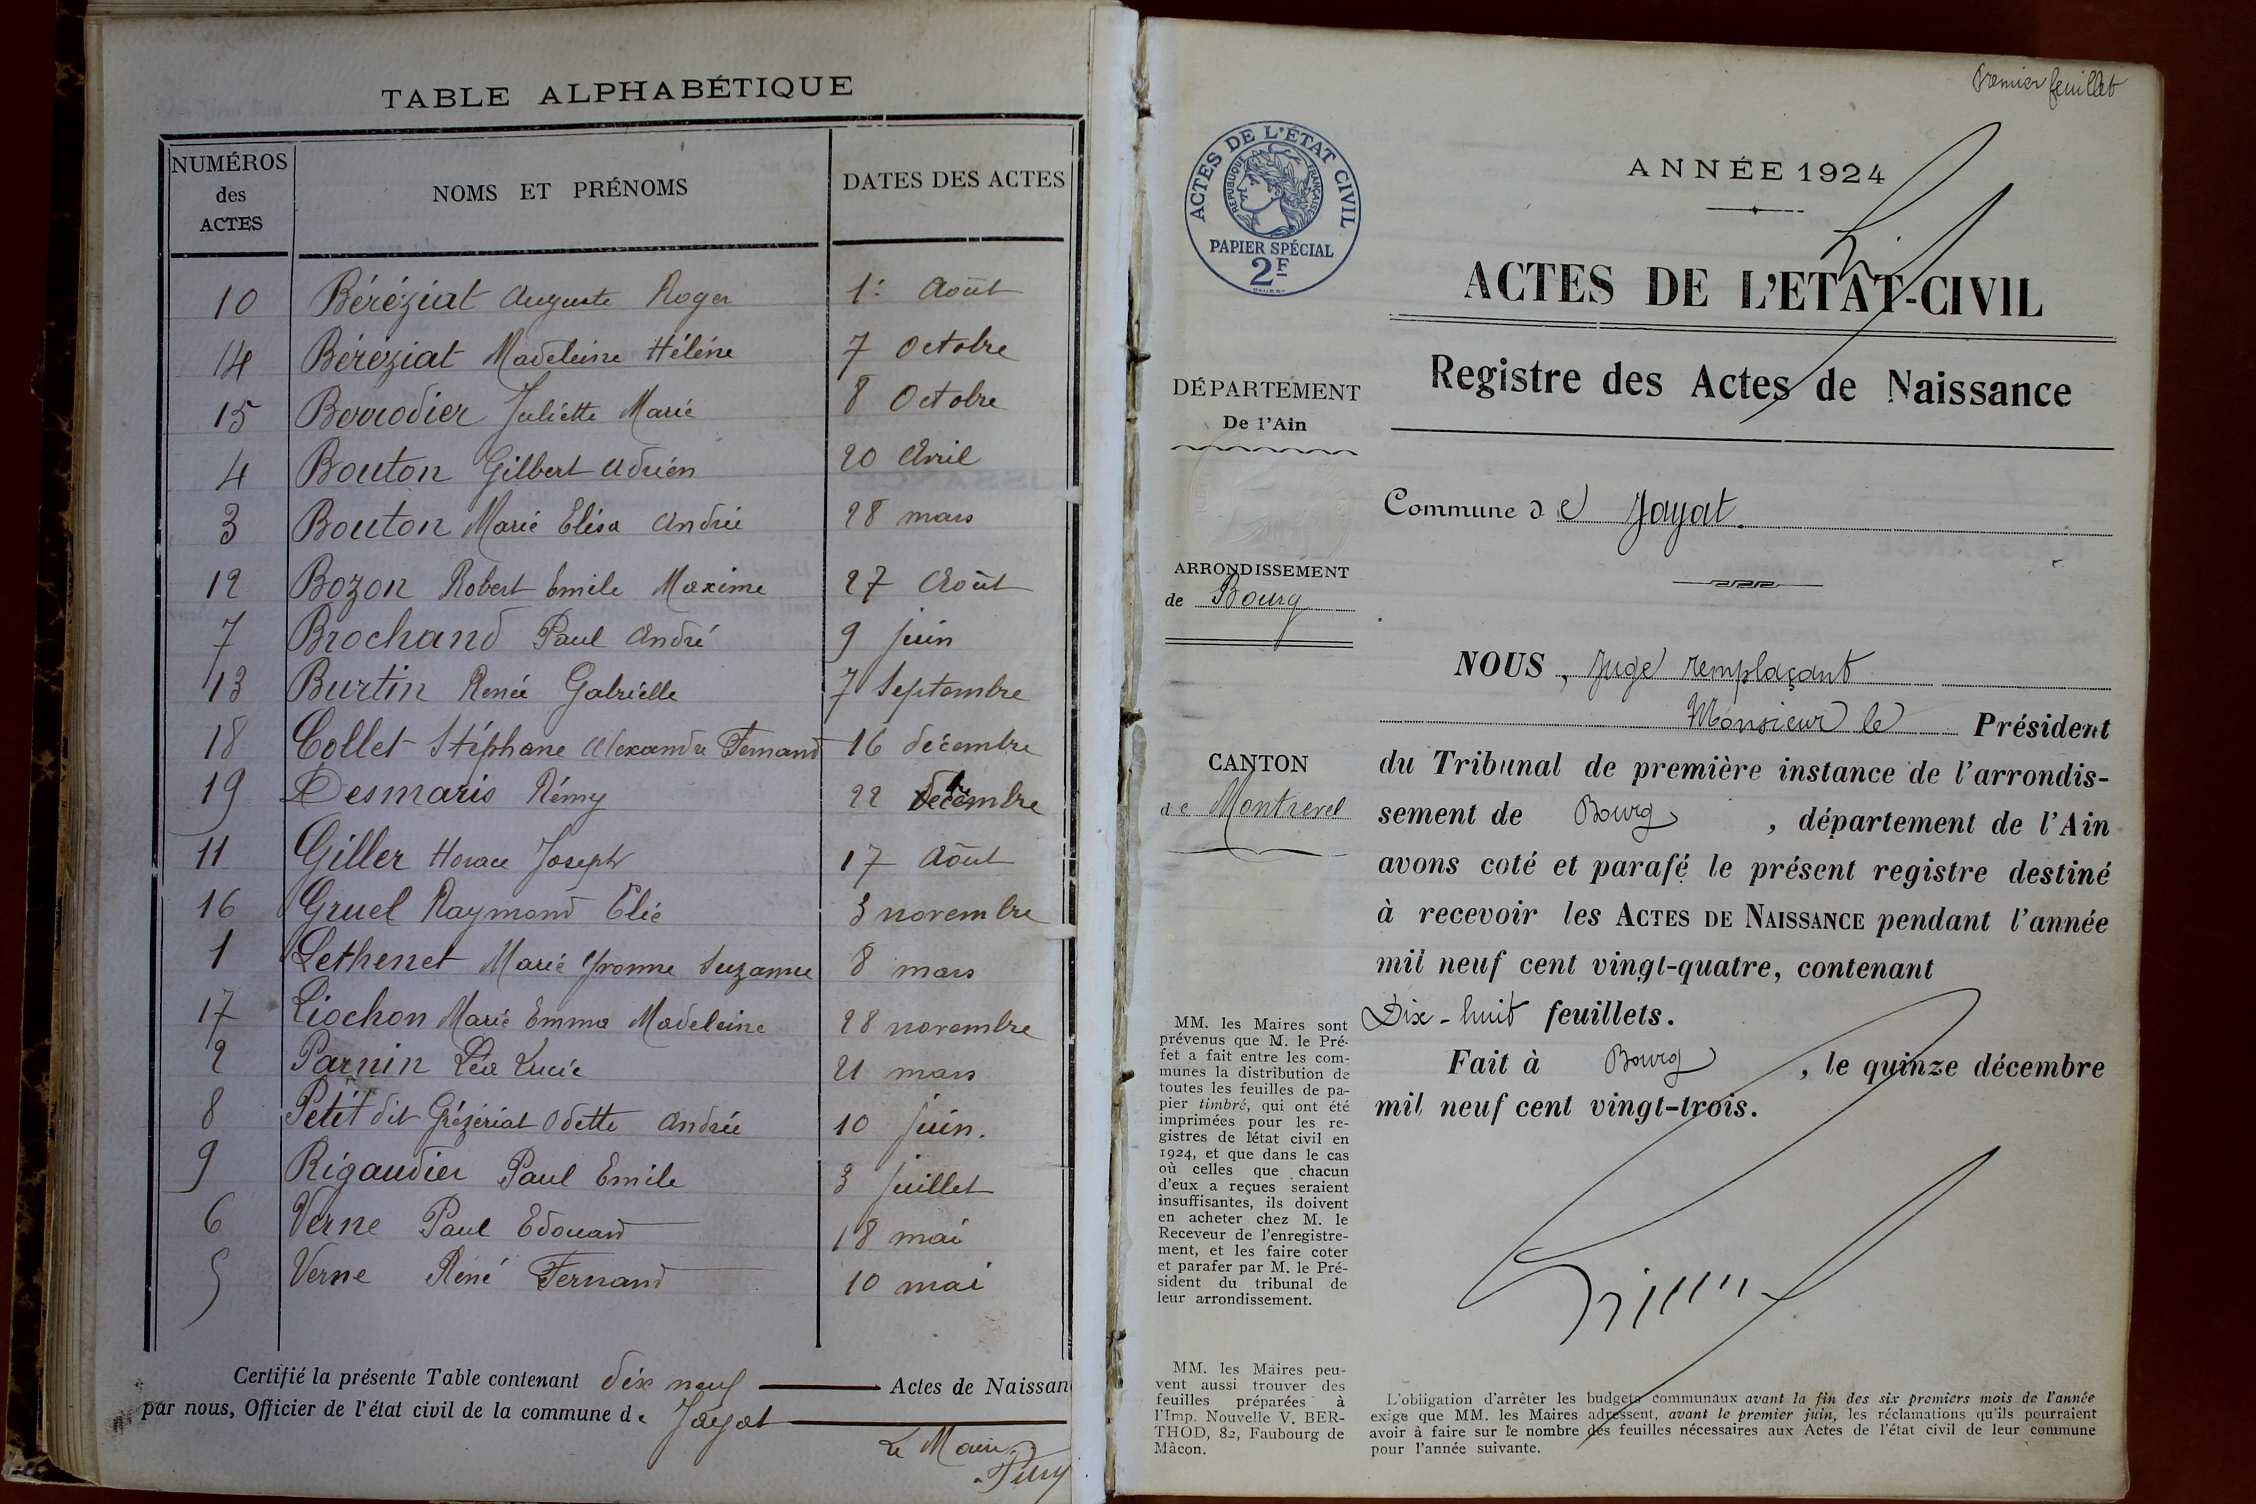 TABLE ALPHABÉTIQUE
NUMÉROS des ACTES NOMS ET PRÉNOMS DATES DES ACTES
10 Béréziat Auguste Roger 1er Août
14 Béréziat Madeleine Hélène 7 Octobre
15 Berrodier Juliette Marie 8 Octobre
4 Bouton Gilbert Adrien 20 Avril
3 Bouton Marie Elisa Andrée 28 mars
12 Bozon Robert Emile Maxime 27 Août
7 Brochand Paul André 9 juin
13 Burtin Renée Gabrielle 7 Septembre
18 Collet Stéphane Alexandre Fernand 16 décembre
19 Desmaris Rémy 22 décembre
11 Giller Horace Joseph 17 Août
16 Gruel Raymond Elie 3 novembre
1 Lethenet Marie Yvonne Suzanne 8 mars
17 Liochon Marie Emma Madeleine 28 novembre
2 Parnin Léa Lucie 21 mars
8 Petit dit Grézériat Odette Andrée 10 juin.
9 Rigaudier Paul Emile 3 juillet
6 Verne Paul Edouard 18 mai
5 Verne René Fernand 10 mai
Certifié la présente Table contenant dix neuf Actes de Naissan
par nous, Officier de l'état civil de la commune de Jayat
Le Maire
Premier feuillet
ACTES DE L'ÉTAT CIVIL
RÉPUBLIQUE FRANÇAISE
PAPIER SPÉCIAL
2F
ANNÉE 1924
ACTES DE L'ETAT-CIVIL
Registre des Actes de Naissance
DÉPARTEMENT
De l'Ain
Commune de Jayat.
ARRONDISSEMENT
de Bourg
CANTON
de Montrevel
NOUS, Juge remplaçant
Monsieur le Président
du Tribunal de première instance de l'arrondis-
sement de Bourg, département de l'Ain
avons coté et parafé le présent registre destiné
à recevoir les ACTES DE NAISSANCE pendant l'année
mil neuf cent vingt-quatre, contenant
Dix-huit feuillets.
Fait à Bourg, le quinze décembre
mil neuf cent vingt-trois.
MM. les Maires sont
prévenus que M. le Pré-
fet a fait entre les com-
munes la distribution de
toutes les feuilles de pa-
pier timbré, qui ont été
imprimées pour les re-
gistres de l'état civil en
1924, et que dans le cas
où celles que chacun
d'eux a reçues seraient
insuffisantes, ils doivent
en acheter chez M. le
Receveur de l'enregistre-
ment, et les faire coter
et parafer par M. le Pré-
sident du tribunal de
leur arrondissement.
MM. les Maires peu-
vent aussi trouver des
feuilles préparées à
l'Imp. Nouvelle V. BER-
THOD, 82, Faubourg de
Mâcon.
L'obligation d'arrêter les budgets communaux avant la fin des six premiers mois de l'année
exige que MM. les Maires adressent, avant le premier juin, les réclamations qu'ils pourraient
avoir à faire sur le nombre des feuilles nécessaires aux Actes de l'état civil de leur commune
pour l'année suivante.